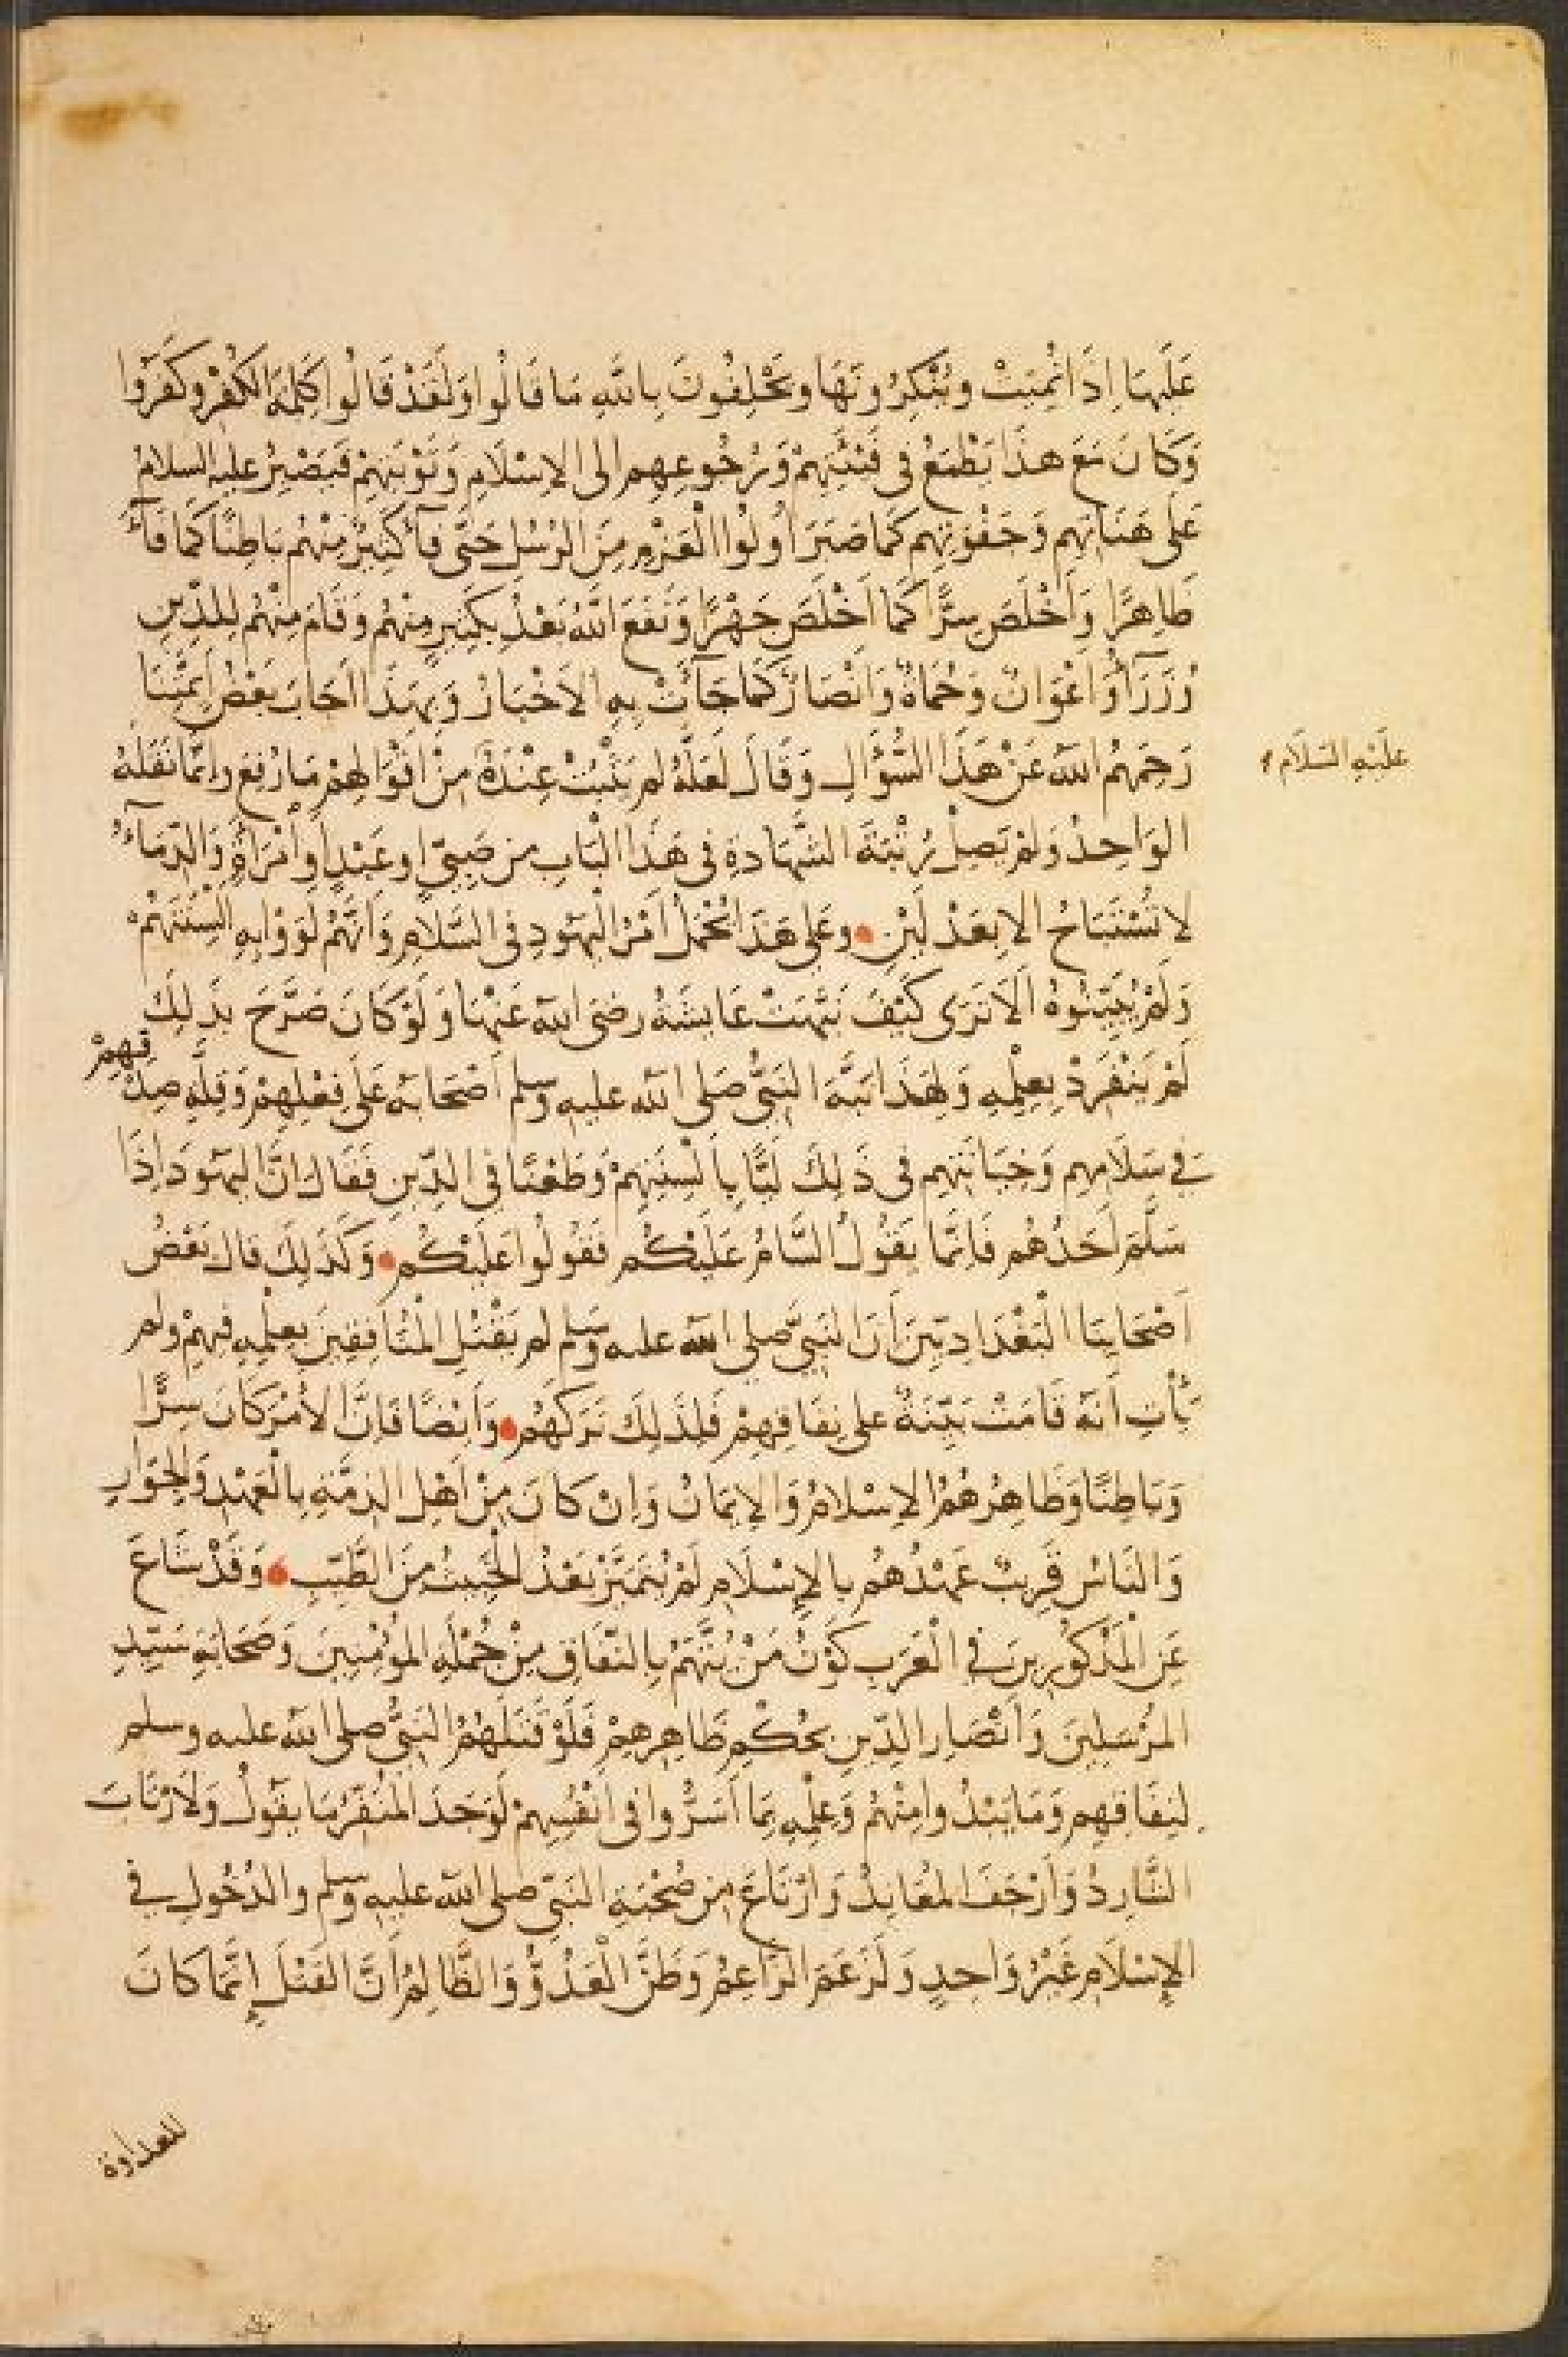 عَلَيهَا اِذَا نُمِيَتْ وَيُنْكِرُونَهَا وَيَحْلِفُونَ بِاللّٰهِ مَا قَالُوا وَلَقَدْ قَالُوا كَلِمَةَ الكُفْرِ وَكَفَرُوا
وَكَانَ مَعَ هذَا يَطْمَعُ فى فَيْئَتِهِمْ وَرُجُوعِهِم الى الاِسْلَامِ وَتَوْبَتِهِمْ فَيَصْبِرُ عليه السلامُ
عَلى هَنَاتِهِم وَجَفْوَتِهِم كَمَا صَبَرَ أُولُوا الْعَزْمِ مِنَ الرُسُلِ حَتّى فَآءَ كَثِيرٌ مِنْهُمْ بَاطِنًا كَمَا فَآءَ
ظَاهِرًا وَأَخْلَصَ سِرًّا كَمَا اَخْلَصَ جَهْرًا وَنَفَعَ اللّٰهُ بَعْدُ بِكَثِيرٍ مِنْهُم وَقَامَ مِنْهُم لِلدِّينِ
وُزَرَآءُ وَاَعْوَانٌ وَحُمَاةٌ وَاَنْصَارٌ كَمَا جَآءَتْ بِهِ الاَخْبَارُ وَبِهَذَا اَجَابَ بَعْضُ اَئِمَّتِنَا
رَحِمَهُم اللّٰه عَنْ هَذَا السُّؤَالِ وَقَالَ لَعَلَّهُ لم يَثْبُتْ عِنْدَهُ مِنْ اقْوَالِهِمْ مَا رُفِعَ وانَّمَا نَقَلَهُ
عَلَيْهِ السَّلَام
الوَاحِدُ وَلَمْ يَصِلْ رُتْبَةَ الشَّهَادَةِ فى هَذَا الْبَابِ من صَبِىٍّ اوعَبْدٍ أوِ امْرَأةٍ وَالدِّمَآءُ
لا تُسْتَبَاحُ الا بِعَدْلَيْنِ وعَلى هَذَا يُحْمَلُ اَمْرُ الْيَهُودِ فى السَّلَامِ وَاَنَّهُمْ لَوَوْا بِهِ اَلْسِنَتَهُمْ
وَلَمْ يُبَيِّنُوهُ اَلَا تَرَى كَيْفَ نَبَّهَتْ عَايشَةُ رضىَ اللّٰه عَنْهَا وَلَوْ كَانَ صَرَّحَ بِذَلِكَ
لَمْ يَنْفَرِدْ بِعِلْمِهِ وَلِهَذَا نَبَّهَ النَّبِىُّ صَلى اللّٰه عليه وسلم اَصْحَابَهُ عَلَى فِعْلِهِمْ وَقِلَّةِ صِدْقِهِمْ
فِى سَلَامِهِم وَخِيَانَتِهِم فى ذَلِكَ لَيًّا بِاَلْسِنَتِهِمْ وَطَعْنًا فى الدِّينِ فَقَالَ انَّ اليَهُودَ اِذَا
سَلَّمَ اَحَدُهُم فَاِنَّمَا يَقُولُ السَّامُ عَلَيْكُم فَقُولُوا عَلَيْكُم وَكَذَلِكَ قال بَعْضُ
اَصْحَابِنَا الْبَغْدَادِيِّينَ اَنَ النَبِىَّ صلى اللّٰه عليه وسلم لم يَقْتُلِ الْمُنَافِقِينَ بِعِلْمِهِ فِيهِمْ ولم
يَأْتِ انَّه قَامَتْ بَيِّنَةٌ على نِفَاقِهِمْ فَلِذَلِكَ تَرَكَهُم وَاَيْضًا فَاِنَّ الاَمْرَ كَانَ سِرًّا
وَبَاطِنًا وَظَاهِرُهُمُ الاِسْلَامُ وَالاِيمَانُ وَاِنْ كَانَ مِنْ اَهْلِ الذِمَّةِ بِالْعَهْدِ وَالجِوَارِ
وَالنَاسُ قَرِيبٌ عَهْدُهُم بِالاِسْلَامِ لَمْ يَتَمَيَّزْ بَعْدُ الْخَبِيثُ مِنَ الطَّيِّبِ وَقَدْ شَاعَ
عَنِ الْمَذْكُورِينَ فِى الْعَرَبِ كَوْنُ مَنْ يُتَّهَمُ بِالنِّفَاقِ مِنْ جُمْلَةِ المُؤْمِنِينَ وَصَحَابَةِ سَيِّدِ
المُرْسَلِينَ وَاَنْصَارِ الدِّينِ بِحُكْمِ ظَاهِرِهِمْ فَلَوْ قَتَلَهُمُ النَبِىُّ صلى اللّٰه عليه وسلم
لِنِفَاقِهِم وَمَا يَبْدُوا مِنْهُمْ وَعِلْمِهِ بِمَا اَسَرُّوا فى اَنْفُسِهِمْ لَوَجَدَ المُنَفِّرُ مَا يَقُولُ وَلَارْتَابَ
الشَّارِدُ وَاَرْجَفَ المعَانِدُ وَارْتَاعَ من صُحْبَةِ النَبِىّ صلى اللّٰه عليهِ وسلم والدُخُولِ فِى
الإِسْلَامِ غَيْرُ وَاحِدٍ وَلَزَعَمَ الزَاعِمُ وَظَنَّ الْعَدُوُّ وَالظَّالِمُ اَنَّ القَتْلَ اِنَّمَا كَانَ
للعداوة